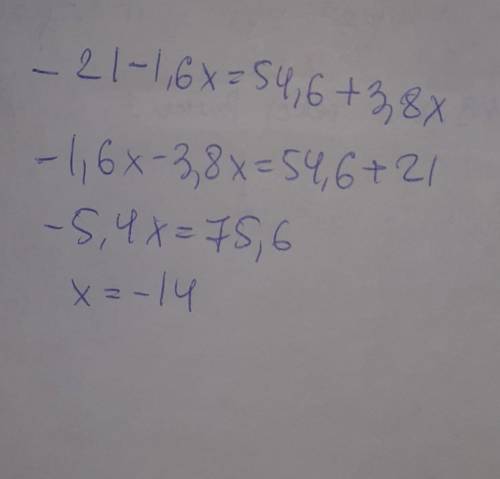 - 21 - 1,6x = 54,6 + 3,8x
- 1,6x - 3,8x = 54,6 + 21
- 5,4x = 75,6
x = - 14